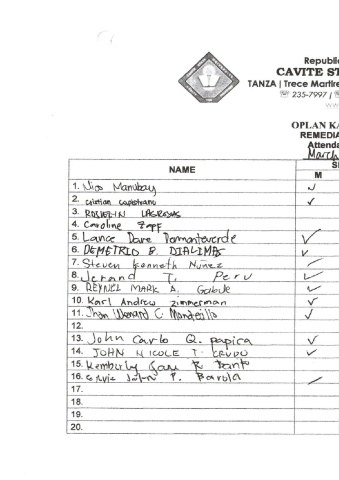 Republi
CAVITE ST
TANZA | Trece Martire
235-7997 |
www
OPLAN KA
REMEDIA
Attenda
March
NAME
S
M
1. Nico Manubay ✓
2. Cristian Capistrano ✓
3. ROSVELIN LAGROSAS
4. Caroline Zapf
5. Lance Dave Dormonteverde ✓
6. DEMETRIO B. DIALIMAS ✓
7. Steven Kenneth Nuñez ✓
8. Jerand T. Peru ✓
9. REYNEL MARK A. ✓
10. Karl Andrew Zimmerman ✓
11. Jhon Monteillo ✓
12.
13. John Carlo Q. Papica ✓
14. JOHN NICOLE T. ✓
15. Kemberly R.
16. P. Barola ✓
17.
18.
19.
20.